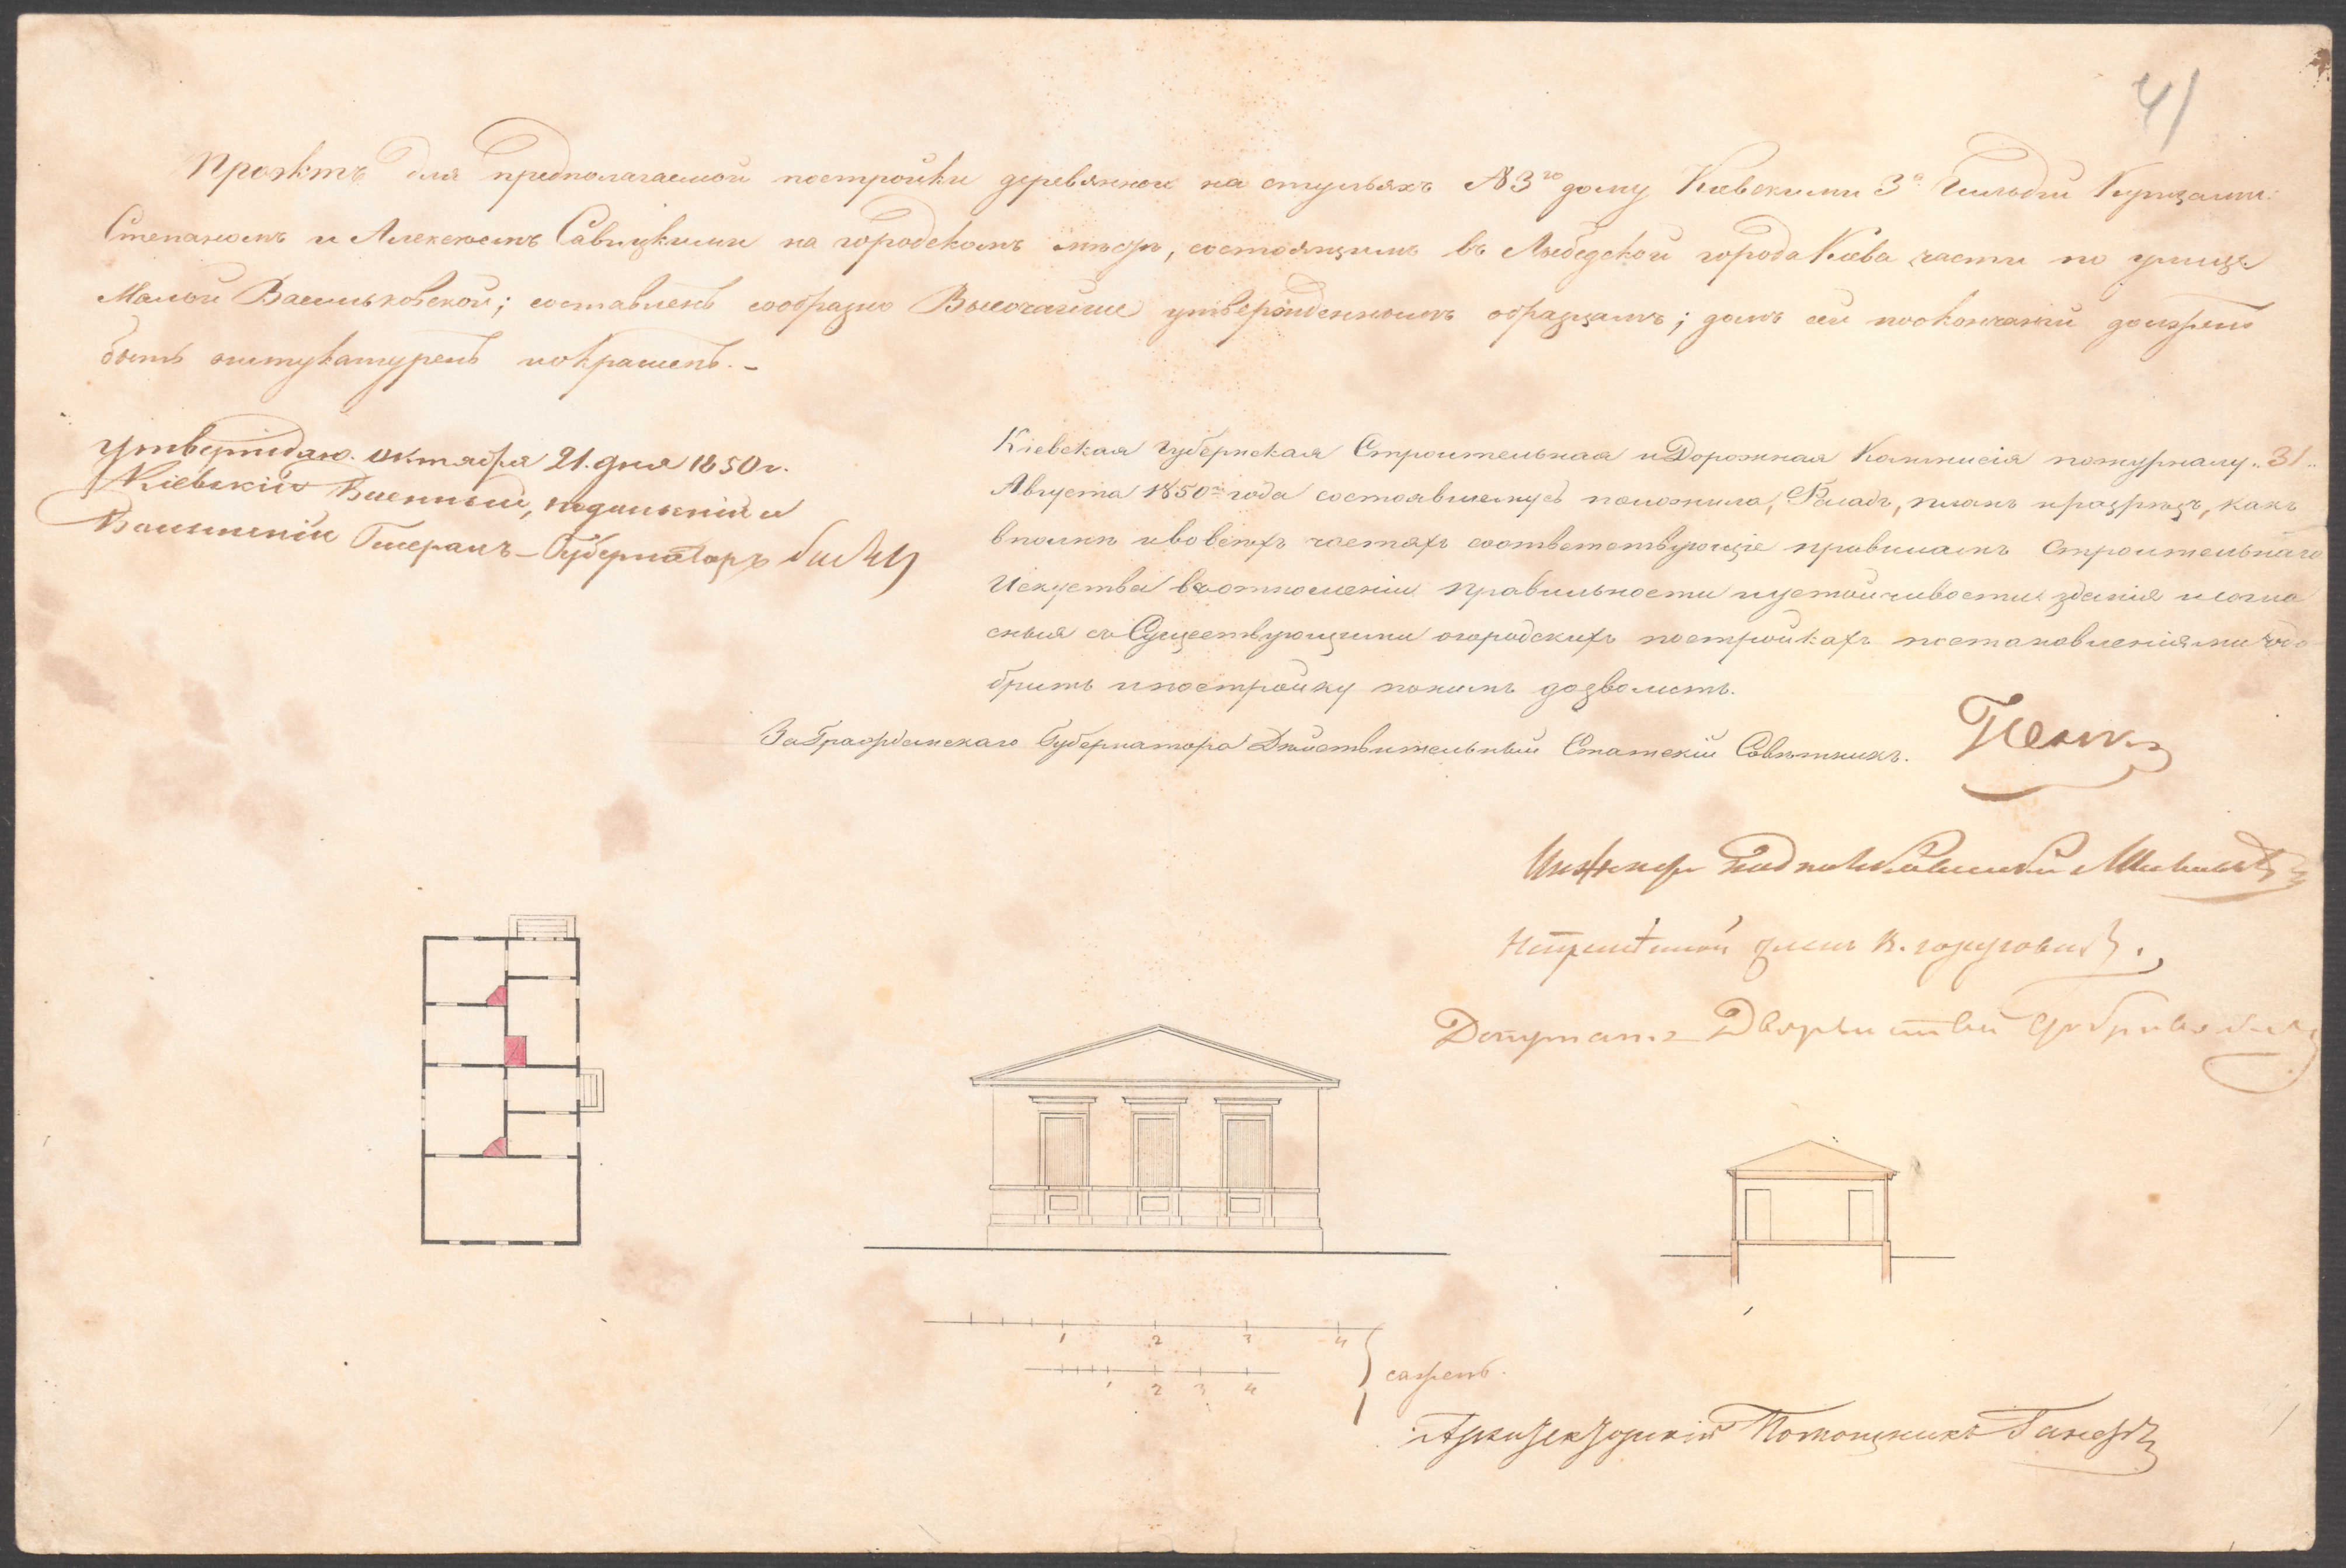 41
Проэктъ для предполагаемой постройки деревянной на стульяхъ №3го дому Кіевскими 3й Гильдіи Купцами:
Степаномъ и Алексеемъ Савицкими на городскомъ мѣстѣ, состоящимъ въ Лыбедской города Кіева части по улице
Малой Васильковской; составленъ сообразно Высочайше утвержденнымъ образцамъ; домъ сей поокончаніи долженъ
быть оштукатуренъ иокрашенъ. –
Утверждаю. октября 21. дня 1850 г.
Кіевскій Военный, подольскій и
Волынскій Генералъ-Губернаторъ
Кіевская Губернская Строительная и Дорожная Коммисія пожурналу „31„
Августа 1850го года состоявшемуся положила, Фасадъ, планъ иразрѣзъ, какъ
вполнѣ ивовсѣхъ частяхъ соответствующіе правиламъ Строительнаго
Искуства вотношеніи правильности иустойчивости зданія исогла
сныя съ Существующими огородскихъ постройкахъ постановленіями одо
брить ипостройку понимъ дозволить.
За Гражданскаго Губернатора Дѣйствительный Статскій Совѣтникъ.
Инженеръ Подполковникъ
членъ
Депутатъ Дворянства
1 2 3 4
1 2 3 4
саженъ.
Архитекторскій Помощникъ